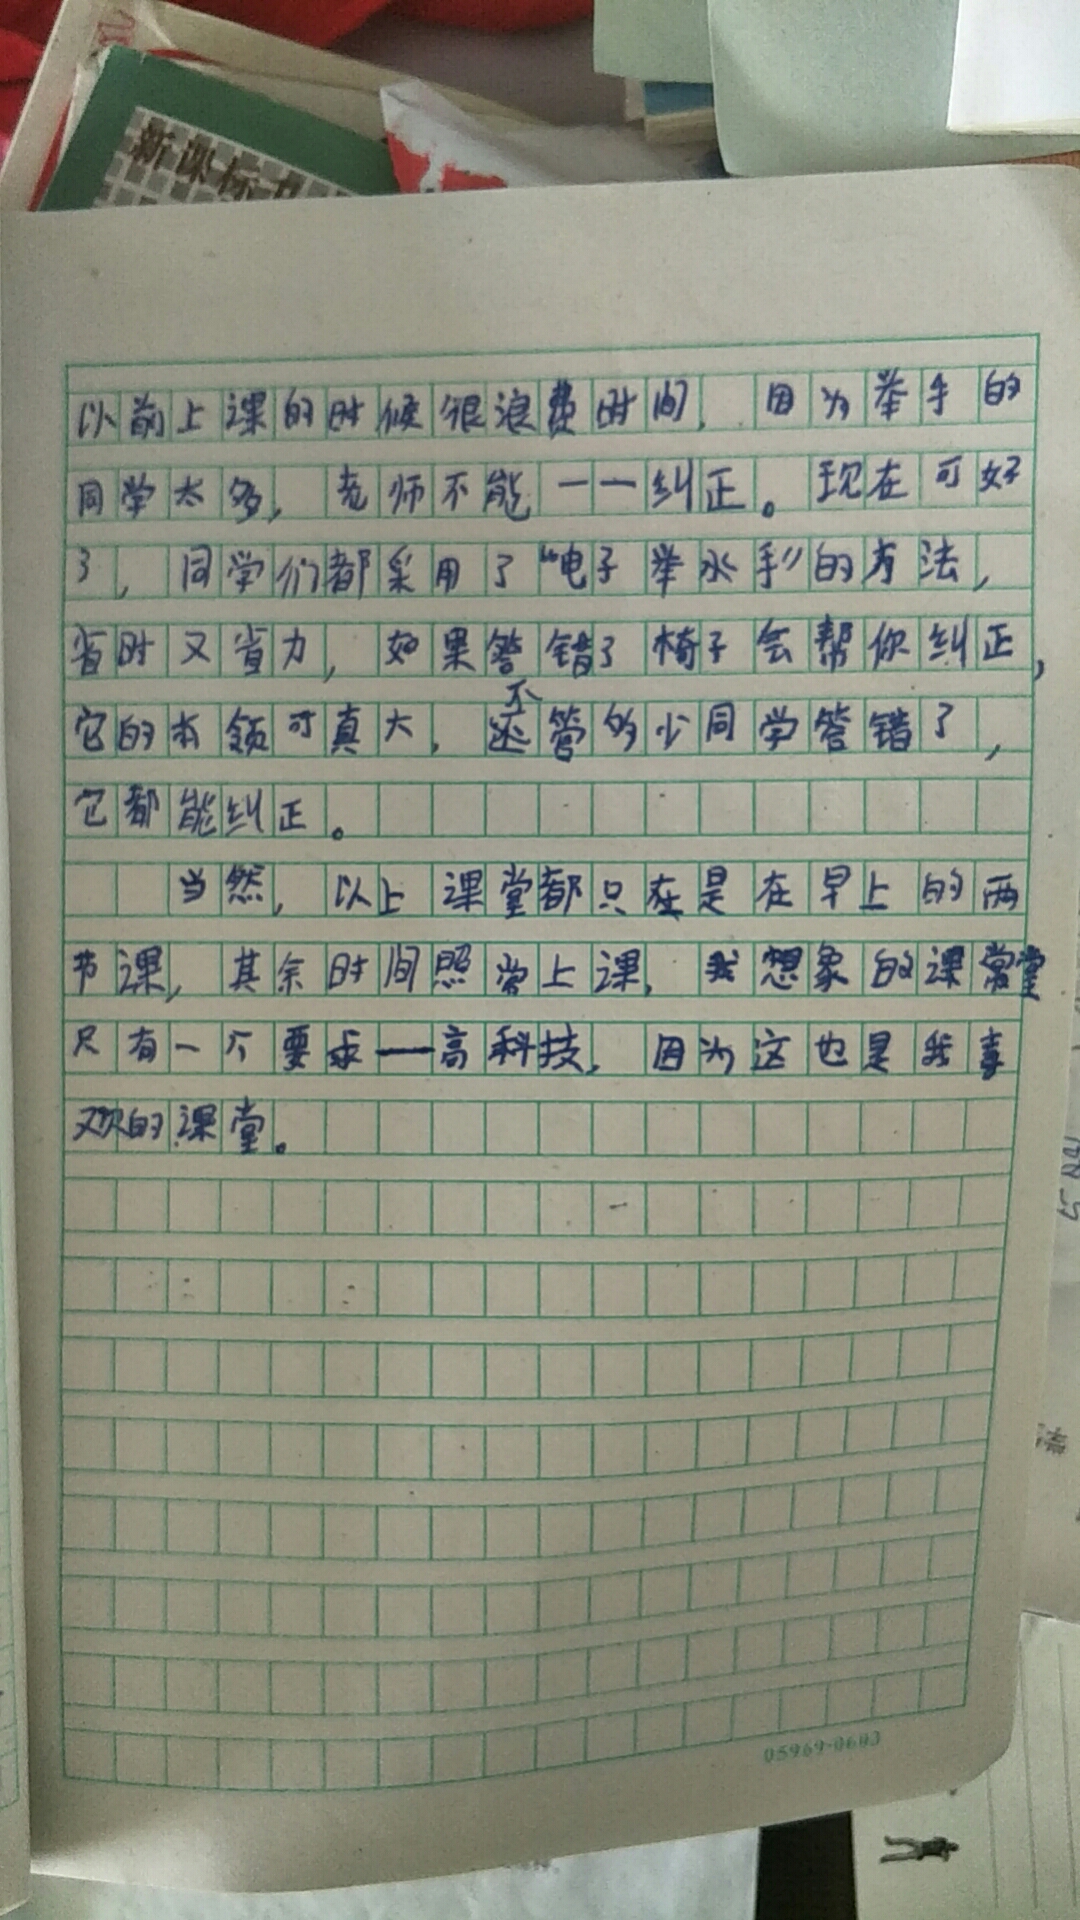 新课标
以前上课的时候很浪费时间，因为举手的
同学太多，老师不能一一纠正。现在可好
了，同学们都采用了“电子举水手”的方法，
省时又省力，如果答错了椅子会帮你纠正，
它的本领可真大，不管多少同学答错了，
它都能纠正。
当然，以上课堂都只在是在早上的两
节课，其余时间照常上课，我想象的课堂
只有一个要求——高科技，因为这也是我喜
欢的课堂。
05969-0603